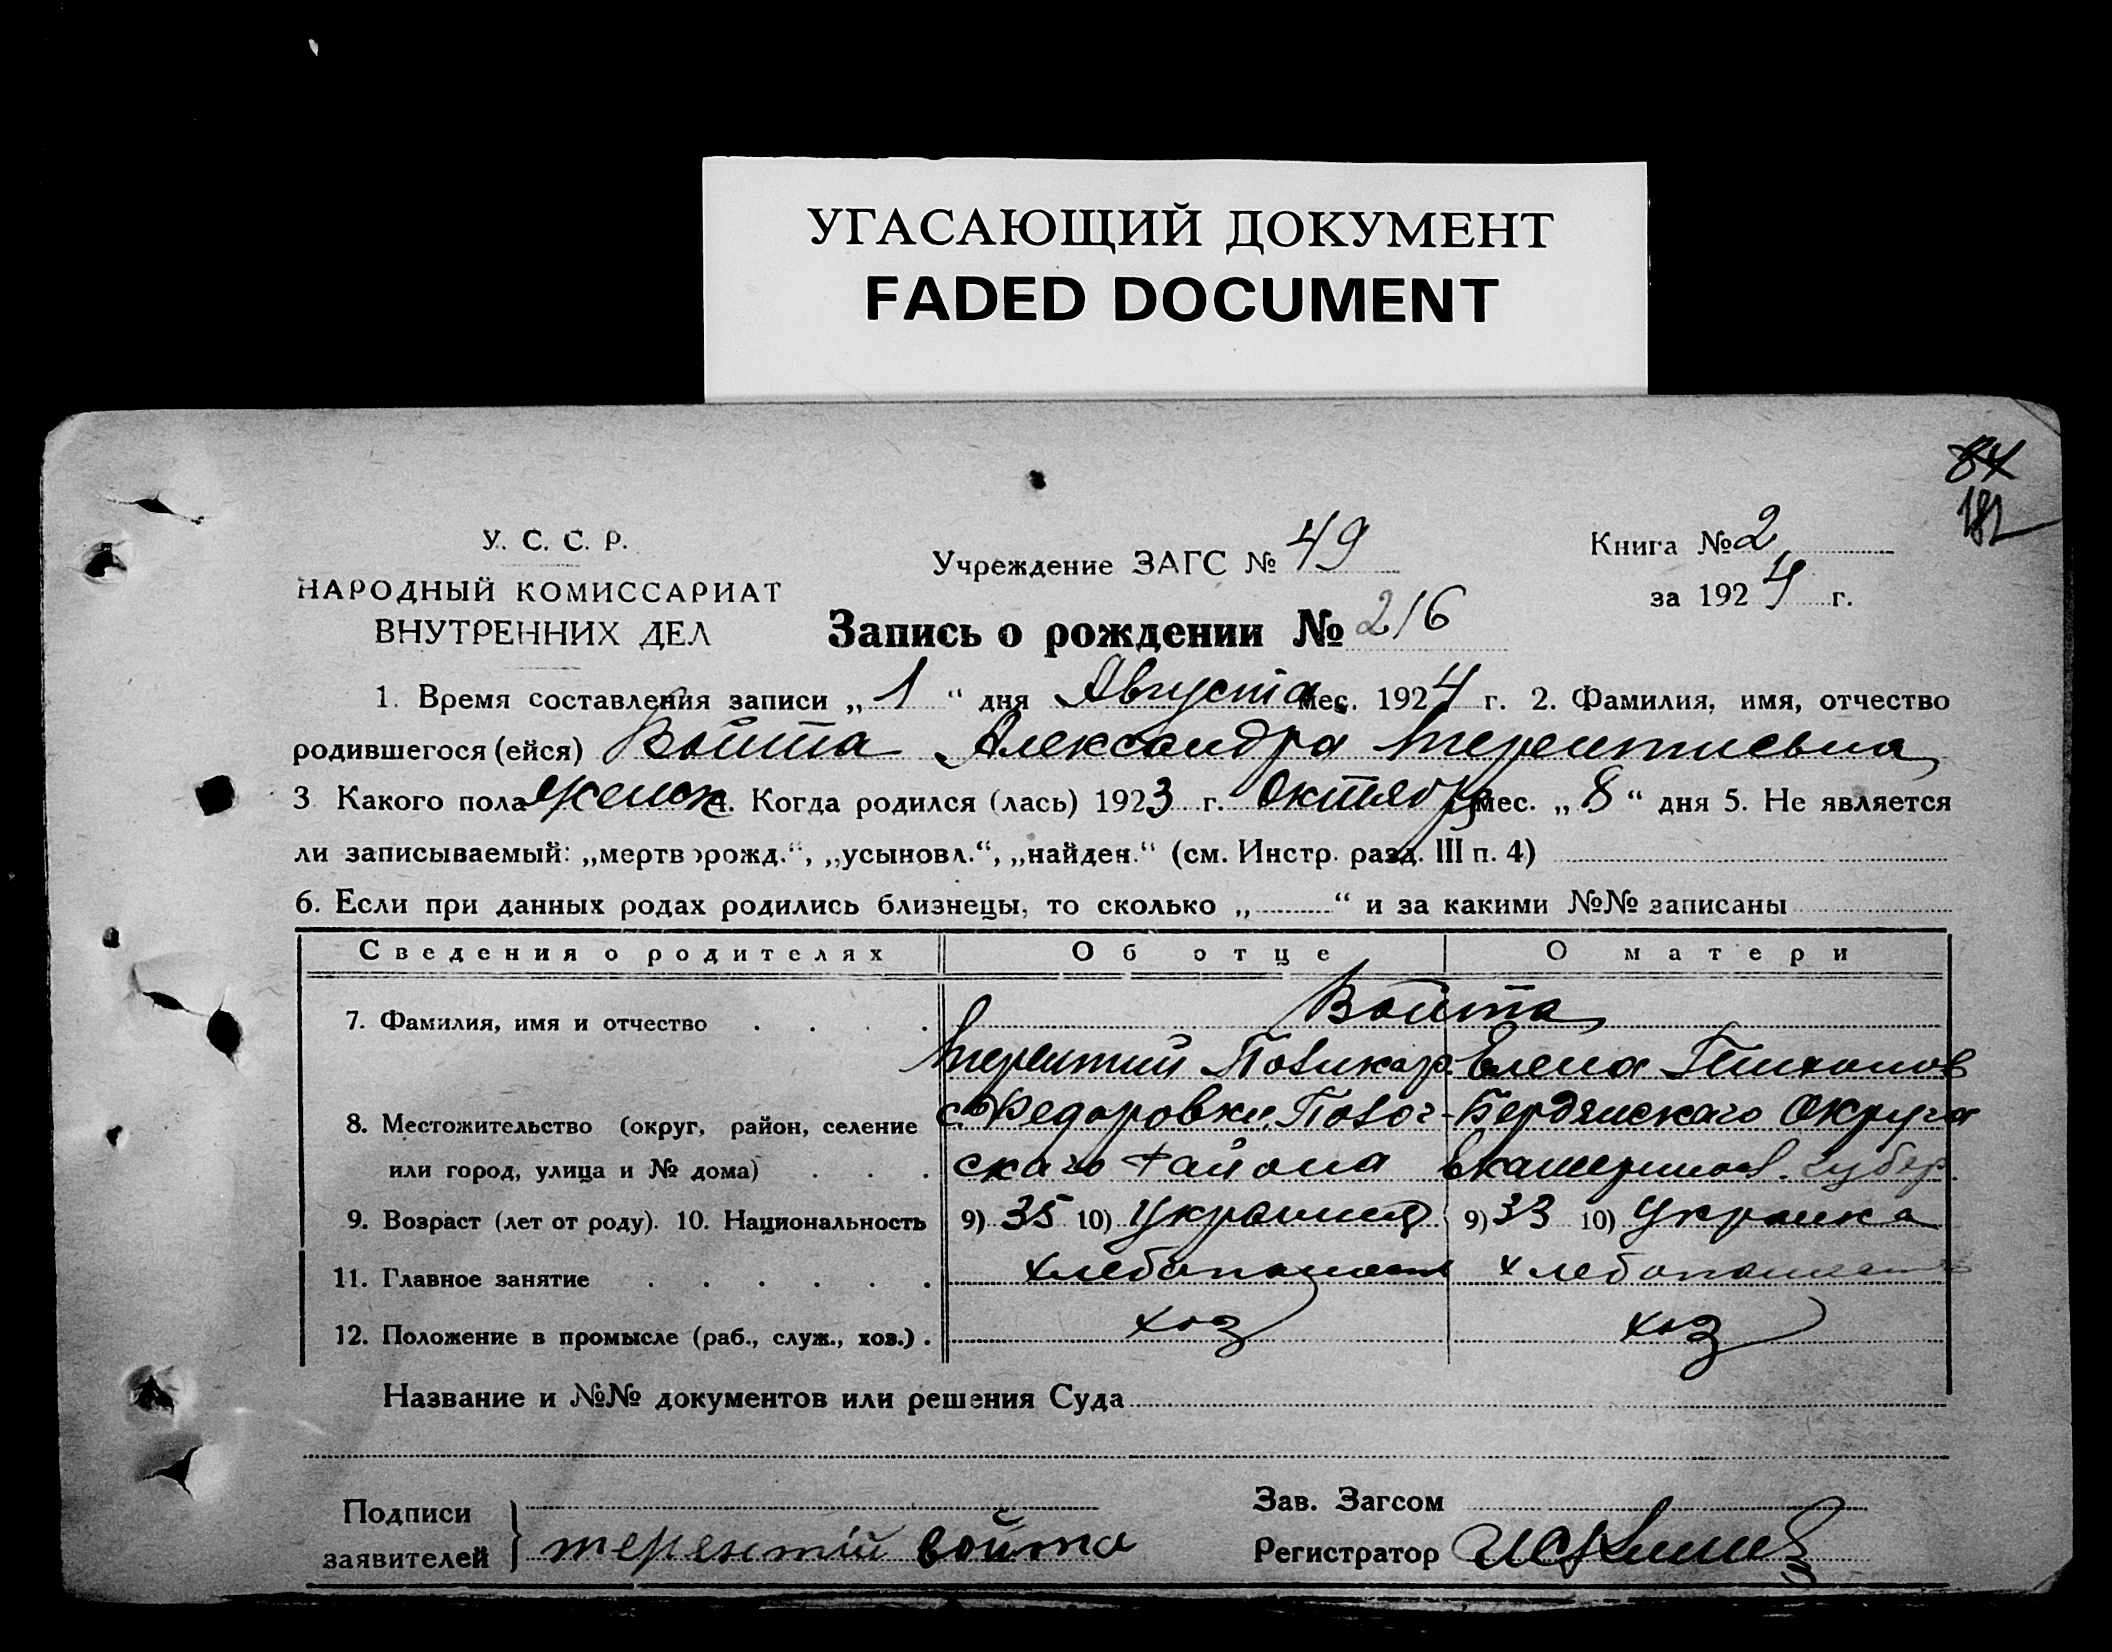 УГАСАЮЩИЙ ДОКУМЕНТ
FADED DOCUMENT
84
182
У. С. С. Р.
НАРОДНЫЙ КОМИССАРИАТ
ВНУТРЕННИХ ДЕЛ
Учреждение ЗАГС № 49
Книга № 2
за 1924 г.
Запись о рождении № 216
1. Время составления записи „ 1 “ дня Августа мес. 1924 г. 2. Фамилия, имя, отчество
родившегося (ейся) Войта Александра Терентиевна
3 Какого пола женск 4. Когда родился (лась) 1923 г. Октяб мес. „ 8 “ дня 5. Не является
ли записываемый: „мертворожд.“, „усыновл.“, „найден.“ (см. Инстр. разд. III п. 4)
6. Если при данных родах родились близнецы, то сколько „ “ и за какими №№ записаны
Сведения о родителях Об отце О матери
7. Фамилия, имя и отчество Войта
Терентий Поликар. Елена Тихонов
8. Местожительство (округ, район, селение с. Федоровки, Полог- Бердянскаго Округа
или город, улица и № дома) скаго района Екатеринос. губер.
9. Возраст (лет от роду). 10. Национальность 9) 35 10) Украинец 9) 33 10) Украинка
11. Главное занятие хлебопашест хлебопашест
12. Положение в промысле (раб., служ., хоз.) хоз хоз
Название и №№ документов или решения Суда
Подписи
заявителей } терентій войта
Зав. Загсом
Регистратор